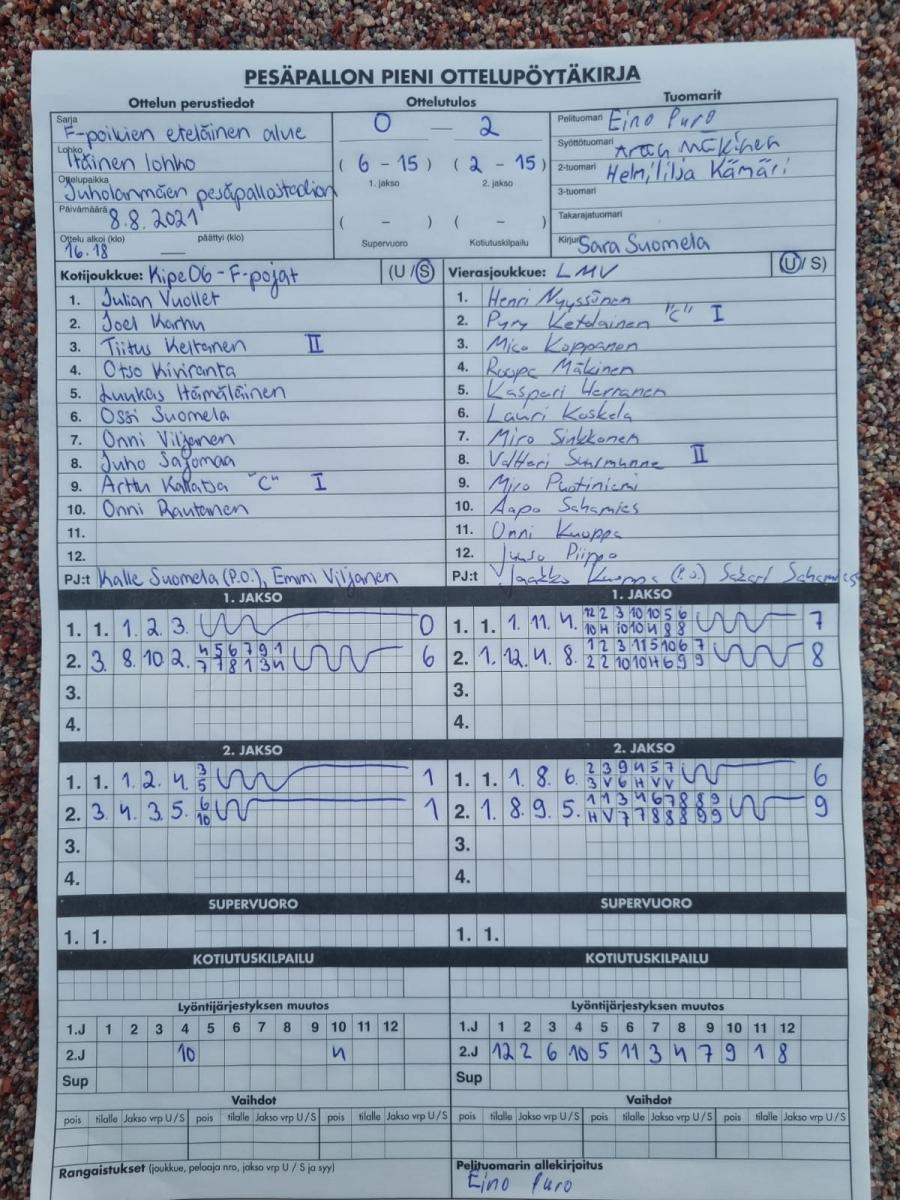 PESÄPALLON PIENI OTTELUPÖYTÄKIRJA
Ottelun perustiedot
Sarja
F-poikien eteläinen alue
Lohko
Itäinen lohko
Ottelupaikka
Juholanmäen pesäpallostadion
Päivämäärä
8.8.2021
Ottelu alkoi (klo) päättyi (klo)
16.18 —
Ottelutulos
0 — 2
( 6 - 15 ) ( 2 - 15 )
1. jakso 2. jakso
( - ) ( - )
Supervuoro Kotiutuskilpailu
Tuomarit
Pelituomari Eino Puro
Syöttötuomari Mäkinen
2-tuomari Helmililja Kämäri
3-tuomari
Takarajatuomari
Kirjuri Sara Suomela
Kotijoukkue: Kipe06 - F-pojat (U / S)
1. Julian Vuollet
2. Joel Karhu
3. Tiitus Keltanen II
4. Otso Kiviranta
5. Luukas Hämäläinen
6. Ossi Suomela
7. Onni Viljanen
8. Juho Sajomaa
9. Arttu "C" I
10. Onni Rautanen
11.
12.
PJ:t Kalle Suomela (P.O.), Emmi Viljanen
Vierasjoukkue: LMV (U / S)
1. Henri Nyyssönen
2. Pyry Ketolainen "C" I
3. Mico Kopponen
4. Roope Mäkinen
5. Kaspari Herranen
6. Lauri Koskela
7. Miro Sinkkonen
8. Valtteri II
9. Miro Puotiniemi
10. Aapo Sahamies
11. Onni Kuoppa
12. Juuso Piippo
PJ:t Jaakko Kuoppa (P.O.) Sakari Sahamies
1. JAKSO
1. 1. 1. 2. 3. 0
2. 3. 8. 10. 2. 4 5 6 7 9 1 6
7 7 8 1 3 4
3.
4.
1. JAKSO
1. 1. 1. 11. 4. 12 2 3 10 10 5 6 7
10 4 10 10 4 8 8
2. 1. 12. 4. 8. 1 2 3 11 5 10 6 7 8
2 2 10 10 H 6 9 9
3.
4.
2. JAKSO
1. 1. 1. 2. 4. 3 1
5
2. 3. 4. 3. 5. 6 1
10
3.
4.
2. JAKSO
1. 1. 1. 8. 6. 2 3 9 4 5 7 6
3 V 6 H V V
2. 1. 8. 9. 5. 1 1 3 4 6 7 8 8 9 9
H V 7 7 8 8 8 9 9
3.
4.
SUPERVUORO
1. 1.
SUPERVUORO
1. 1.
KOTIUTUSKILPAILU
KOTIUTUSKILPAILU
Lyöntijärjestyksen muutos
1.J 1 2 3 4 5 6 7 8 9 10 11 12
2.J 10 4
Sup
Lyöntijärjestyksen muutos
1.J 1 2 3 4 5 6 7 8 9 10 11 12
2.J 12 2 6 10 5 11 3 4 7 9 1 8
Sup
Vaihdot
pois tilalle Jakso vrp U / S pois tilalle Jakso vrp U / S pois tilalle Jakso vrp U / S
Vaihdot
pois tilalle Jakso vrp U / S pois tilalle Jakso vrp U / S pois tilalle Jakso vrp U / S
Rangaistukset (joukkue, pelaaja nro, jakso vrp U / S ja syy)
Pelituomarin allekirjoitus
Eino Puro